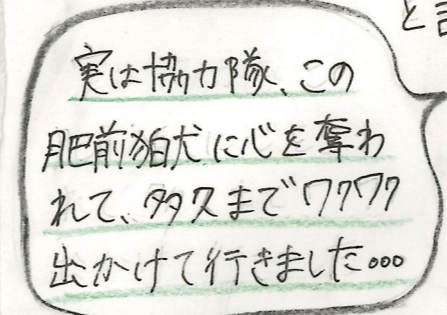 と言
実は協力隊、この
肥前狛犬に心を奪わ
れて、多久までワクワク
出かけて行きました...